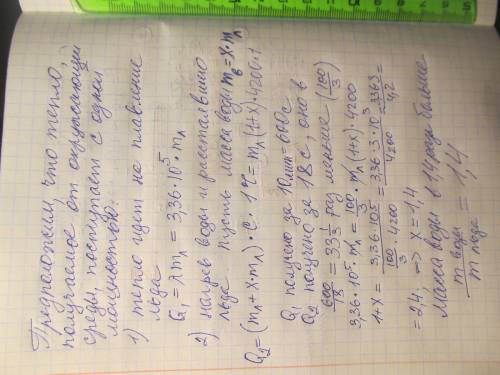 Предположим, что тепло,
получаемое от окружающей
среды, поступает с одной
мощностью.
1) тепло идет на плавление
льда
Q₁ = λm_л = 3,36·10⁵·m_л
2) нагрев воды и растаявшего
льда. Пусть масса воды m_в = x·m_л
Q₂ = (m_л + x·m_л)·c·1°C = m_л(1+x)·4200·1
Q₁ получено за 10 мин = 600 с
Q₂ получено за 18 с, оно в
600/18 = 33 1/3 раз меньше (100/3)
3,36·10⁵·m_л = 100/3·m_л(1+x)·4200
1+x = 3,36·10⁵/(100/3·4200) = 3,36·3·10³/4200 = 3,36·3/4,2 =
= 2,4 => x = 1,4
Масса воды в 1,4 раза больше
m воды / m льда = 1,4